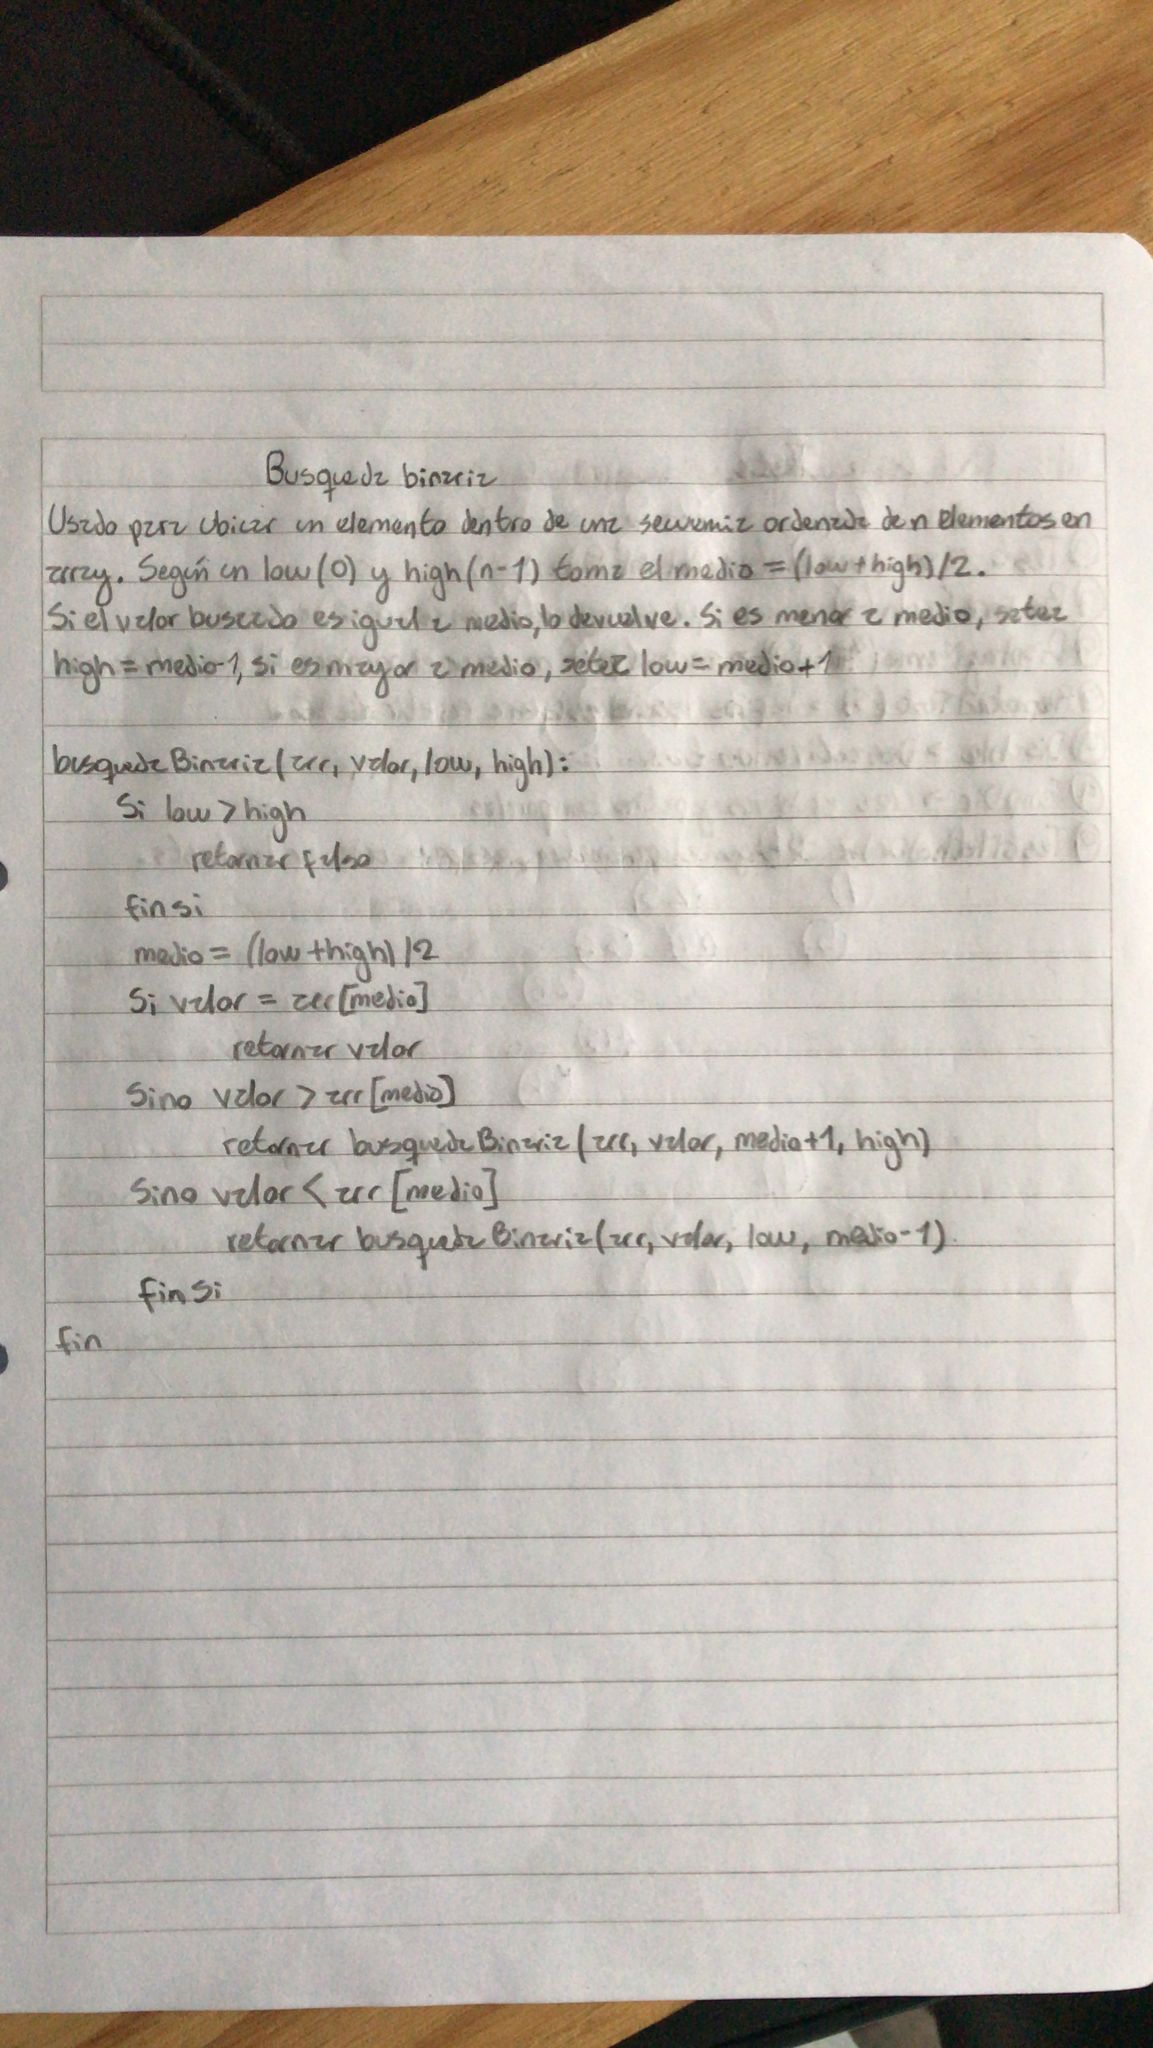 Busqueda binaria
Usado para ubicar un elemento dentro de una secuencia ordenada de n elementos en
array. Según un low (0) y high (n-1) toma el medio = (low+high)/2.
Si el valor buscado es igual a medio, lo devuelve. Si es menor a medio, setea
high = medio-1, si es mayor a medio, setea low = medio+1
busquedaBinaria(arr, valor, low, high):
Si low > high
retornar falso
fin si
medio = (low + high) / 2
Si valor = arr[medio]
retornar valor
Sino valor > arr[medio]
retornar busquedaBinaria(arr, valor, medio+1, high)
Sino valor < arr[medio]
retornar busquedaBinaria(arr, valor, low, medio-1)
fin Si
fin